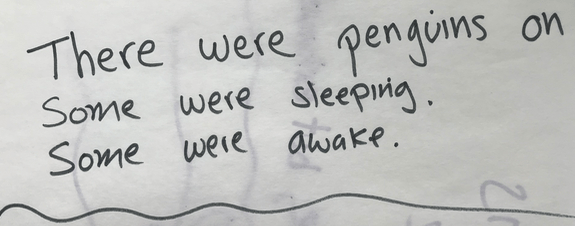 There were penguins on
Some were sleeping.
Some were awake.